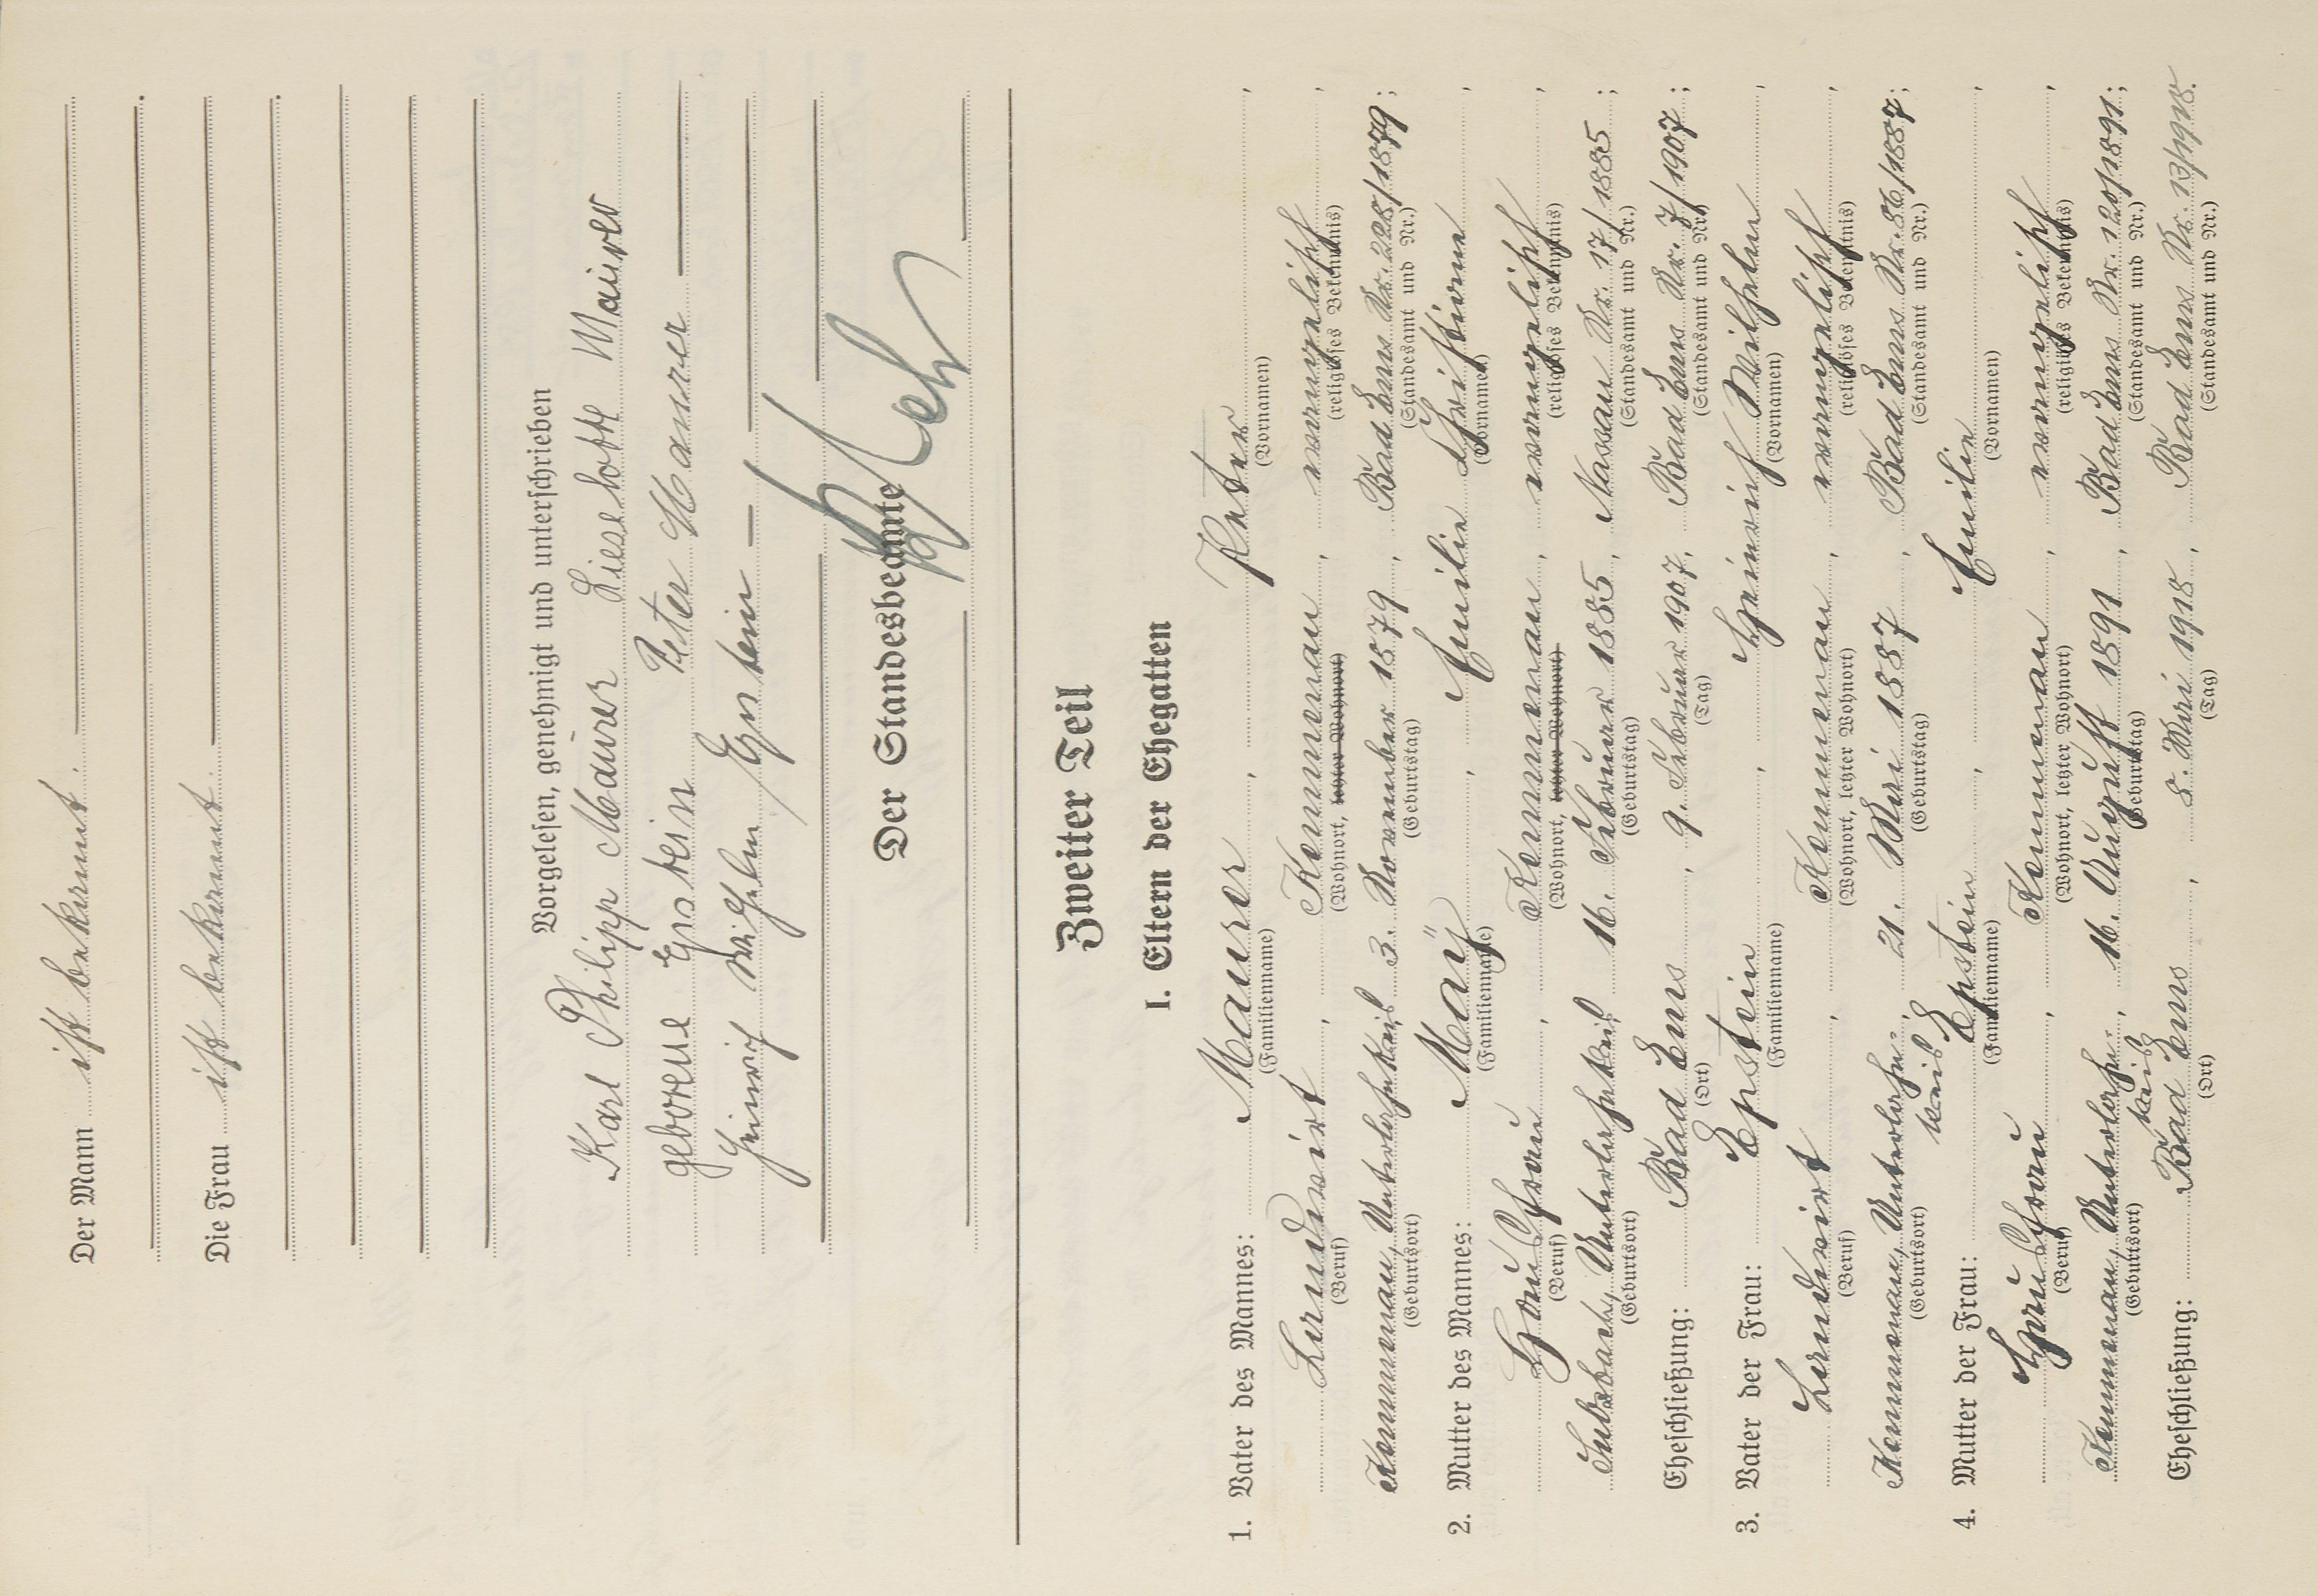 Der Mann ist bekannt.
Die Frau ist bekannt.
Vorgelesen, genehmigt und unterschrieben
Karl Philipp Maurer Lieselotte Maurer
geborene Epstein Peter Maurer
Heinrich Wilhelm Epstein
Der Standesbeamte
Zweiter Teil
I. Eltern der Ehegatten
1. Vater des Mannes: Maurer, Peter,
(Familienname) (Vornamen)
Landwirt, Kemmenau, evangelisch,
(Beruf) (Wohnort, letzter Wohnort) (religiöses Bekenntnis)
Kemmenau, Unterlahnkreis 3. November 1879, Bad Ems Nr. 228/1879;
(Geburtsort) (Geburtstag) (Standesamt und Nr.)
2. Mutter des Mannes: May, Emilie Christiane,
(Familienname) (Vornamen)
Hausfrau, Kemmenau, evangelisch,
(Beruf) (Wohnort, letzter Wohnort) (religiöses Bekenntnis)
Sulzbach, Unterlahnkreis 16. Februar 1885, Nassau Nr. 17/1885;
(Geburtsort) (Geburtstag) (Standesamt und Nr.)
Eheschließung: Bad Ems, 9. Februar 1907, Bad Ems Nr. 7/1907;
(Ort) (Tag) (Standesamt und Nr.)
3. Vater der Frau: Epstein, Heinrich Wilhelm,
(Familienname) (Vornamen)
Landwirt, Kemmenau, evangelisch,
(Beruf) (Wohnort, letzter Wohnort) (religiöses Bekenntnis)
Kemmenau, Unterlahn-, 21. Mai 1887, Bad Ems Nr. 86/1887;
(Geburtsort) kreis (Geburtstag) (Standesamt und Nr.)
4. Mutter der Frau: Epstein, Emilie,
(Familienname) (Vornamen)
Hausfrau, Kemmenau, evangelisch,
(Beruf) (Wohnort, letzter Wohnort) (religiöses Bekenntnis)
Kemmenau, Unterlahn-, 16. August 1891, Bad Ems Nr. 120/1891;
(Geburtsort) kreis (Geburtstag) (Standesamt und Nr.)
Eheschließung: Bad Ems, 8. Mai 1918, Bad Ems Nr. 13/1918.
(Ort) (Tag) (Standesamt und Nr.)